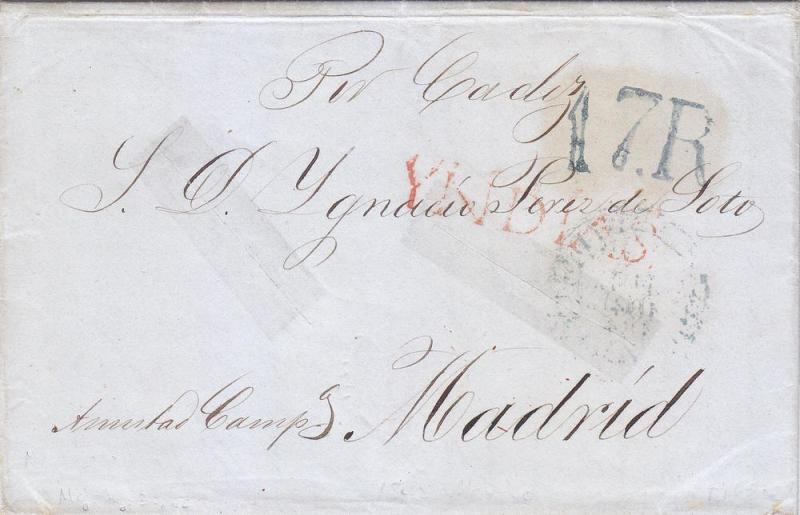 Por Cadiz
17.R
S. D. Ygnacio Perez de Soto
YNDIAS
Amistad Camp.ª
Madrid